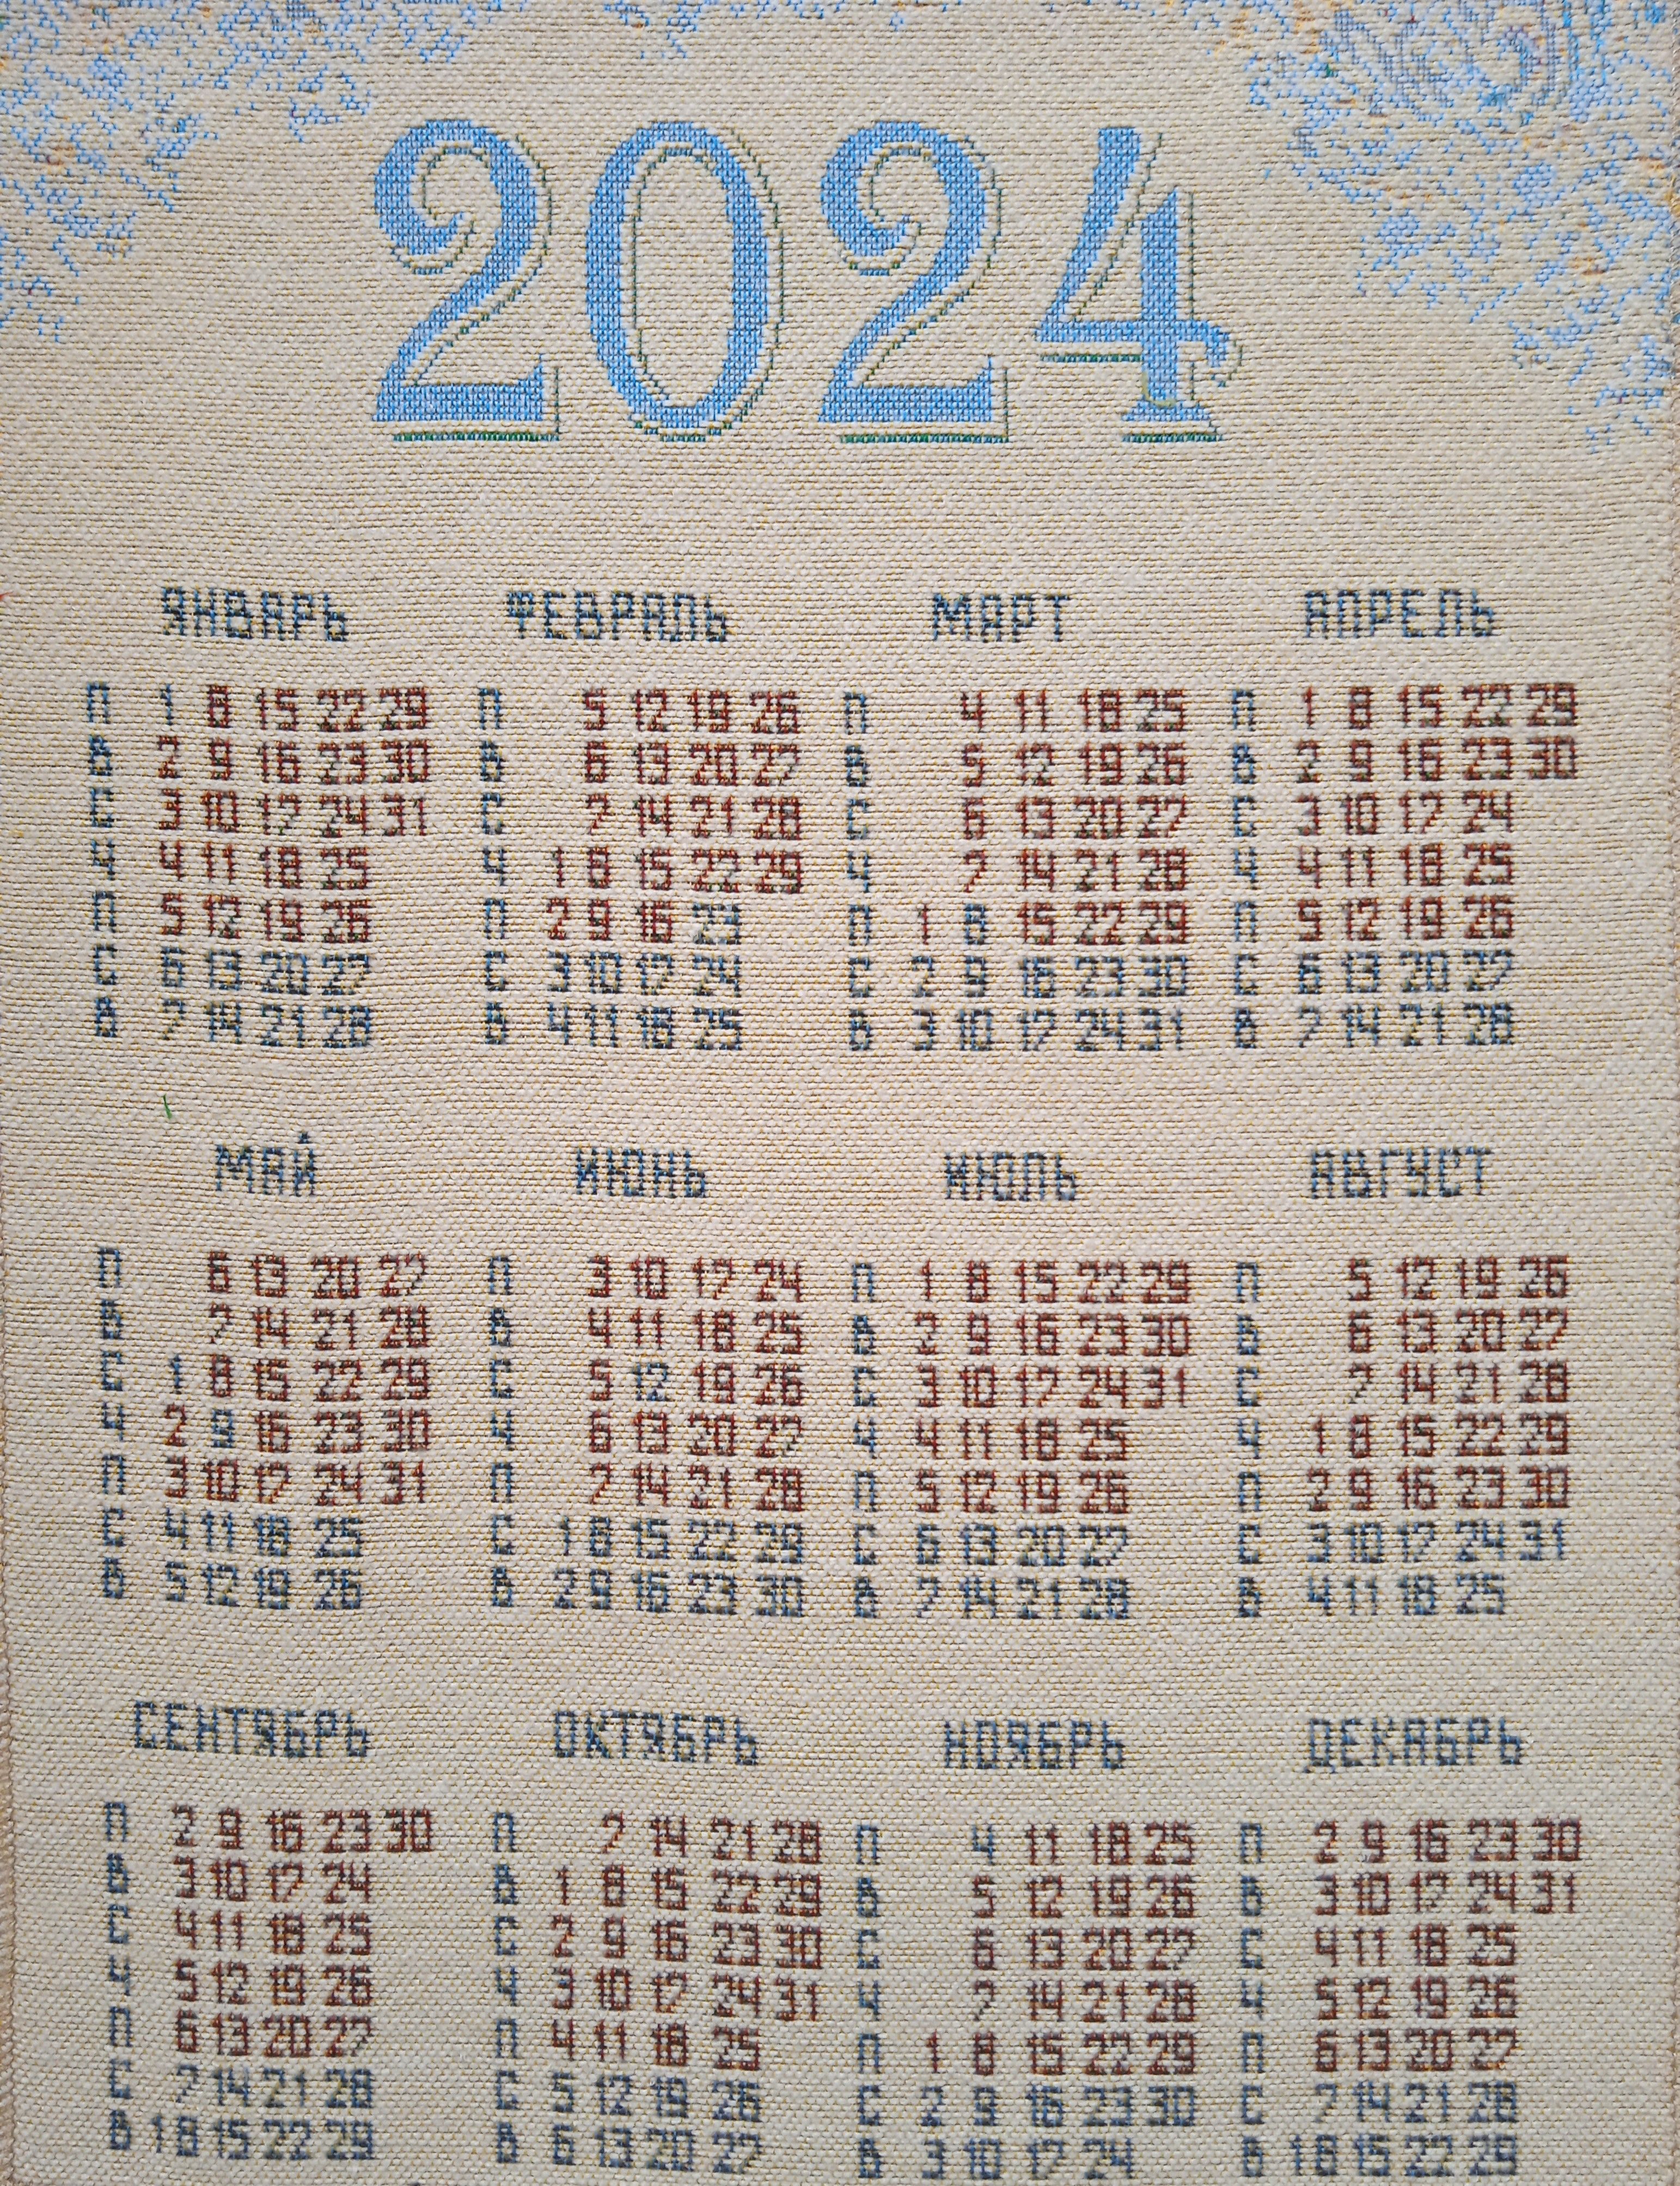 2024
ЯНВАРЬ ФЕВРАЛЬ МАРТ АПРЕЛЬ
П 1 8 15 22 29 П 5 12 19 26 П 4 11 18 25 П 1 8 15 22 29
В 2 9 16 23 30 В 6 13 20 27 В 5 12 19 26 В 2 9 16 23 30
С 3 10 17 24 31 С 7 14 21 28 С 6 13 20 27 С 3 10 17 24
Ч 4 11 18 25 Ч 1 8 15 22 29 Ч 7 14 21 28 Ч 4 11 18 25
П 5 12 19 26 П 2 9 16 23 П 1 8 15 22 29 П 5 12 19 26
С 6 13 20 27 С 3 10 17 24 С 2 9 16 23 30 С 6 13 20 27
В 7 14 21 28 В 4 11 18 25 В 3 10 17 24 31 В 7 14 21 28
МАЙ ИЮНЬ ИЮЛЬ АВГУСТ
П 6 13 20 27 П 3 10 17 24 П 1 8 15 22 29 П 5 12 19 26
В 7 14 21 28 В 4 11 18 25 В 2 9 16 23 30 В 6 13 20 27
С 1 8 15 22 29 С 5 12 19 26 С 3 10 17 24 31 С 7 14 21 28
Ч 2 9 16 23 30 Ч 6 13 20 27 Ч 4 11 18 25 Ч 1 8 15 22 29
П 3 10 17 24 31 П 7 14 21 28 П 5 12 19 26 П 2 9 16 23 30
С 4 11 18 25 С 1 8 15 22 29 С 6 13 20 27 С 3 10 17 24 31
В 5 12 19 26 В 2 9 16 23 30 В 7 14 21 28 В 4 11 18 25
СЕНТЯБРЬ ОКТЯБРЬ НОЯБРЬ ДЕКАБРЬ
П 2 9 16 23 30 П 7 14 21 28 П 4 11 18 25 П 2 9 16 23 30
В 3 10 17 24 В 1 8 15 22 29 В 5 12 19 26 В 3 10 17 24 31
С 4 11 18 25 С 2 9 16 23 30 С 6 13 20 27 С 4 11 18 25
Ч 5 12 19 26 Ч 3 10 17 24 31 Ч 7 14 21 28 Ч 5 12 19 26
П 6 13 20 27 П 4 11 18 25 П 1 8 15 22 29 П 6 13 20 27
С 7 14 21 28 С 5 12 19 26 С 2 9 16 23 30 С 7 14 21 28
В 1 8 15 22 29 В 6 13 20 27 В 3 10 17 24 В 1 8 15 22 29